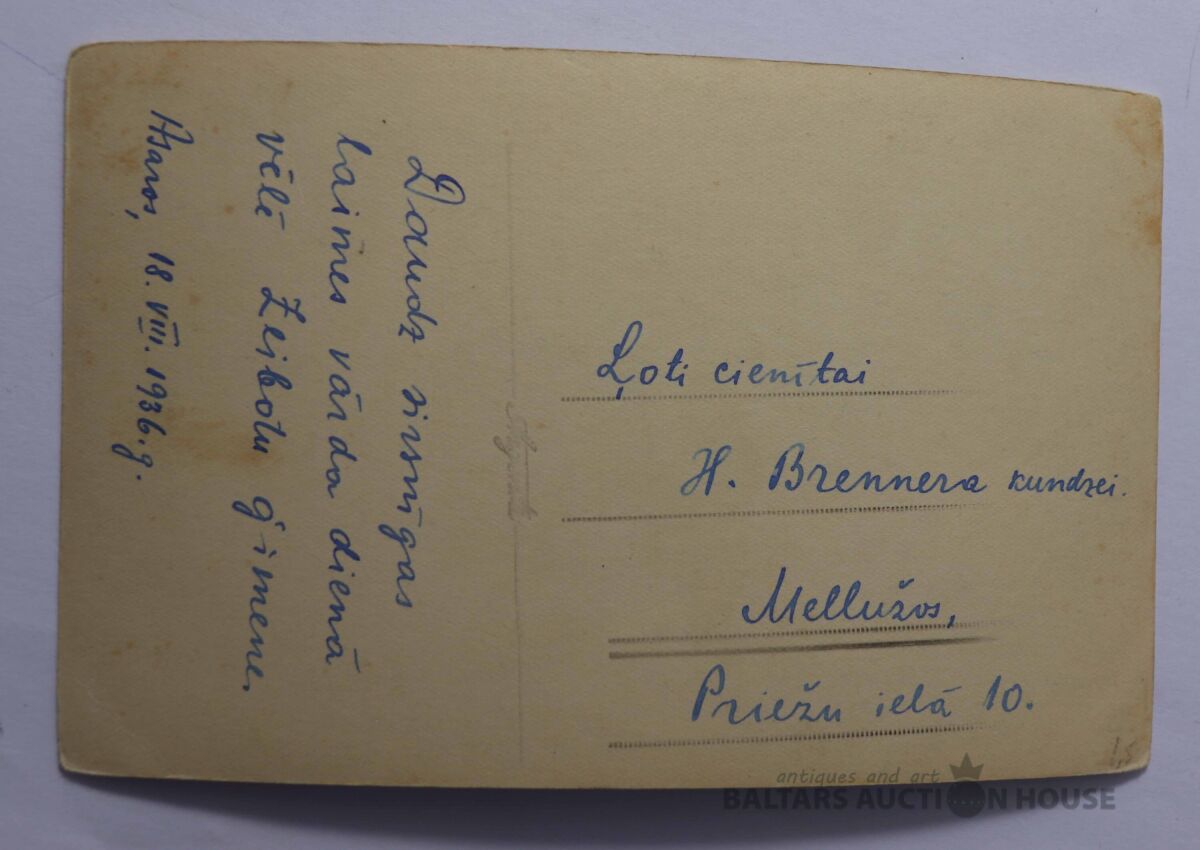 Daudz sirsnīgas
laimes vārda dienā
vēlē Zeibotu ģimene.
Asaros, 18. VIII. 1936. g.
Ļoti cienītai
H. Brennera kundzei.
Mellužos,
Priežu ielā 10.
1,5
antiques and art
BALTARS AUCTION HOUSE